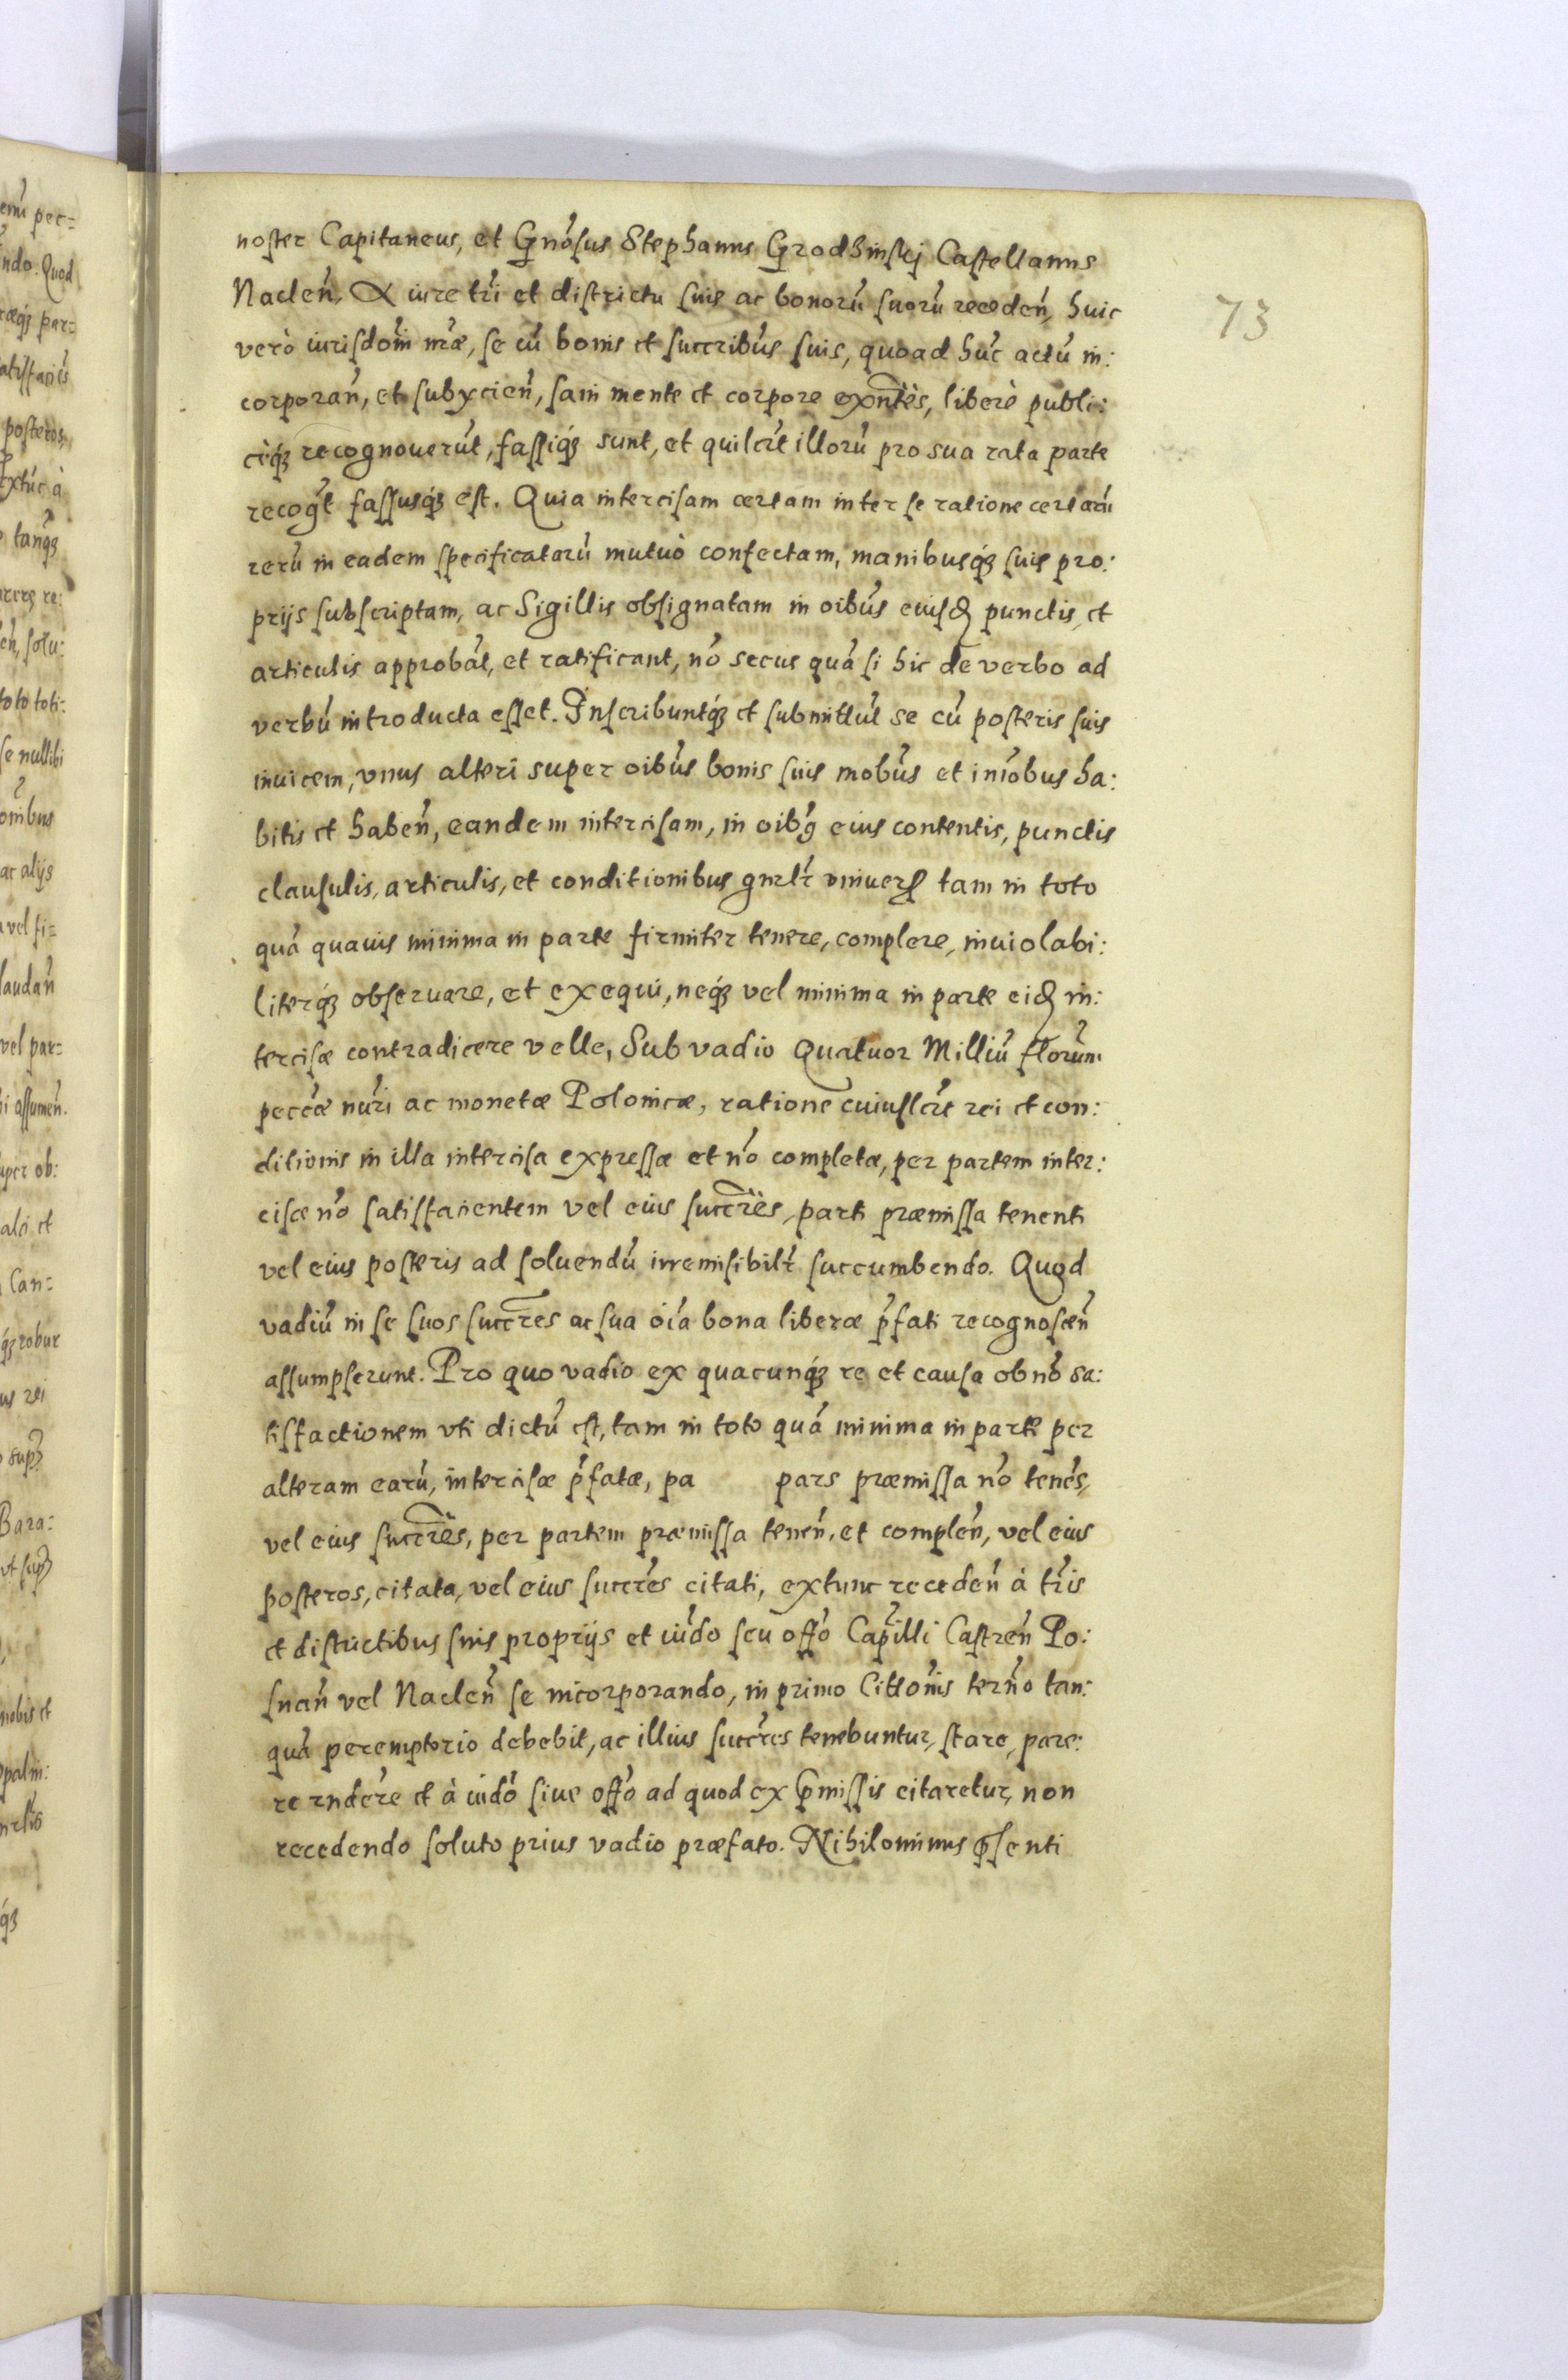 73
noster Capitaneus, et Gnósus Stephanus Grodzinskj Castellanus
Naclen̄, A iure tr̄i et districtu suis ac bonorū suorū receden̄, huic
verò iurisdom̄i nr̄æ, se cū bonis et succribūs suis, quoad hūc actū in:
corporan̄, et subijcien̄, sani mente et corpore exn̄tes, liberè publi:
cèq́ꝫ recognouerūt, fassiq́ꝫ sunt, et quilibt illorū pro sua rata parte
recogt̄ fassusq́ꝫ est. Quia intercisam certam inter se ratione certarū
rerū in eadem specificatarū mutuò confectam, manibusq́ꝫ suis pro:
prijs subscriptam, ac Sigillis obsignatam in oībus eiusd punctis, et
articulis approbāt, et ratificant, nō secus quā si hic de verbo ad
verbū introducta esset. Inscribuntq́ꝫ et submittūt se cū posteris suis
inuicem, vnus alteri super oībus bonis suis mobūs et inmobus ha:
bitis et haben̄, eandem intercisam, in oībꝰ eius contentis, punctis
clausulis, articulis, et conditionibus gnrltr̄ vniuers tam in toto
quā quauis minima in parte firmiter tenere, complere, inuiolabi:
literq́ꝫ obseruare, et exequi, neq́ꝫ vel minima in parte eid in:
tercisæ contradicere velle, Sub vadio Quatuor Milliū florūm
peccæ nūri ac monetæ Polonicæ, ratione cuiuslibt rei et con:
ditionis in illa intercisa expressæ et nō completæ, per partem inter:
cisæ nō satisfacientem vel eius succr̄es, parti præmissa tenenti
vel eius posteris ad soluendū irremisibiltr̄ succumbendo. Quod
vadiū in se suos succr̄es ac sua oīa bona liberæ p̄fati recognoscen̄
assumpserunt. Pro quo vadio ex quacunq́ꝫ re et causa ob nō sa:
tisfactionem vti dictū est, tam in toto quā minima in parte per
alteram earū, intercisæ p̄fatæ, pa pars præmissa nō tenēs,
vel eius succr̄es, per partem præmissa tenen̄, et complen̄, vel eius
posteros, citata, vel eius succr̄es citati, extunc receden̄ à tr̄is
et districtibus suis proprijs et iūdo seu offō Capīlli Castren̄ Po:
snan̄ vel Naclen̄ se incorporando, in primo Cittōnis termn̄o tan:
quā peremptorio debebit, ac illius succr̄es tenebuntur, stare, pare:
re rndēre et à iūdō siue offō ad quod ex p̄missis citaretur, non
recedendo soluto prius vadio præfato. Nihilominus p̄senti